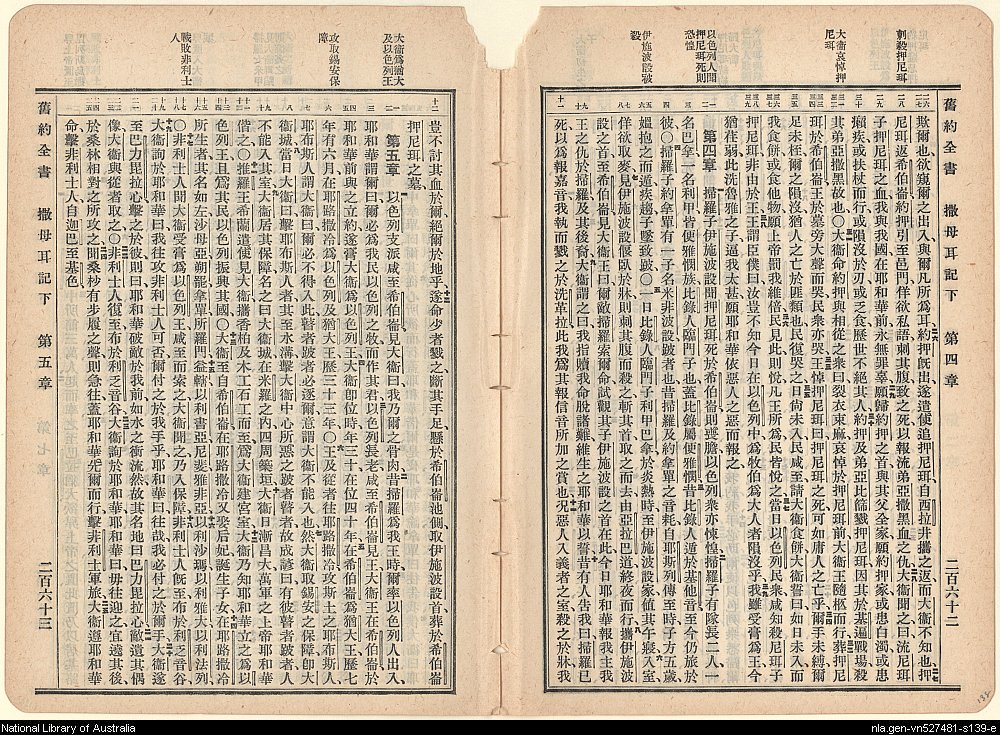 刺殺押尼珥
大衛哀悼押
尼珥
以色列人聞
押尼珥死則
恐惶
伊施波設被
殺
舊約全書 撒母耳記下 第四章 二百六十二
欺爾也欲窺爾之出入與爾凡所爲耳約押既出遂遣使追押尼珥自西拉井攜之返而大衛不知也押
尼珥返希伯崙約押引至邑門佯欲私語刺其腹致之死以報流弟亞撒黑血之仇大衛聞之曰流尼珥
子押尼珥之血我與我國在耶和華前永無罪辜願歸約押之首與其父全家願約押家或患白濁或患
癩疾或扶杖而行或隕沒於刃或乏食歷世不絕其人約押及弟亞比篩戮押尼珥因其於基遍戰場殺
其弟亞撒黑故也〇大衛命約押與相從之衆曰裂衣束麻哀悼於押尼珥前大衛王隨柩而行葬押尼
珥於希伯崙王於墓旁大聲而哭民衆亦哭王悼押尼珥曰押尼珥之死可如庸人之亡乎爾手未縛爾
足未桎爾之隕沒猶人之亡於匪類也民復哭之日尚未入民咸至請大衛食餅大衛誓曰如日未入而
我食餅或食他物願上帝罰我維倍民見此則悅凡王所爲民皆悅之當日以色列民衆咸知殺尼珥子
押尼珥非由於王王謂臣僕曰汝豈不知今日在以色列中爲牧伯爲大人者隕沒乎我雖受膏爲王今
猶荏弱此洗魯雅之子逼我太甚願耶和華依惡人之惡而報之
第四章 掃羅子伊施波設聞押尼珥死於希伯崙則喪膽以色列衆亦悚惶掃羅子有隊長二人一
名巴拿一名利甲皆便雅憫族比錄人臨門子也蓋比錄屬便雅憫昔比錄人遁於基他音至今仍旅於
彼〇掃羅子約拿單有一子名米非波設跛者也昔掃羅及約拿單之音耗自耶斯列傳至時子方五歲
媼抱之而遁疾趨子墜致跛〇一日比錄人臨門子利甲巴拿於炎熱時至伊施波設室値其午寢入室
佯欲取麥見伊施波設偃臥於牀則刺其腹而殺之斬其首取之而去由亞拉巴道終夜而行攜伊施波
設之首至希伯崙見大衛王曰爾敵掃羅索爾命試觀其子伊施波設之首在此今日耶和華報我主我
王之仇於掃羅及其後裔大衛謂之曰我指贖我命脫諸難維生之耶和華以誓昔有人告我曰掃羅已
死以爲報嘉音我執而戮之於洗革拉此我爲其報信音所加之賞也況惡人入義者之室殺之於牀我
大衛爲猶大
及以色列王
攻取錫安保
障
戰敗非利士
人
豈不討其血於爾絕爾於地乎遂命少者戮之斷其手足懸於希伯崙池側取伊施波設首葬於希伯崙
押尼珥之墓
第五章 以色列支派咸至希伯崙見大衛曰我乃爾之骨肉昔掃羅爲我王時爾率以色列人出入
耶和華謂爾曰爾必爲我民以色列之牧而作其君以色列長老咸至希伯崙見王大衛王在希伯崙於
耶和華前與之立約遂膏大衛爲以色列王大衛卽位時年三十在位四十年在希伯崙爲猶大王歷七
年有六月在耶路撒冷爲以色列及猶大王歷三十三年〇王及從者往耶路撒冷攻斯土之耶布斯人
耶布斯人謂大衛曰爾必不得入此瞽者跛者必逐爾意謂大衛不能入也然大衛取錫安之保障卽大
衛城當日大衛曰擊耶布斯人者其至水溝擊大衛中心所惡之跛者瞽者故成諺曰有彼瞽者跛者人
不能入其室大衛居其保障名之曰大衛城在米羅之內四周築垣大衛日漸昌大萬軍之上帝耶和華
偕之〇推羅王希蘭遣使見大衛攜香柏及木工石工而至爲大衛建宮室大衛乃知耶和華立之爲以
色列王且爲其民以色列振興其國〇大衛至自希伯崙在耶路撒冷又娶后妃誕生子女在耶路撒冷
所生者其名如左沙母亞朔罷拿單所羅門益轄以利書亞尼斐雅非亞以利沙瑪以利雅大以利法列
〇非利士人聞大衛受膏爲以色列王咸至而索之大衛聞之乃入保障非利士人既至布於利乏音谷
大衛詢於耶和華曰我往攻非利士人可否爾付之於我手乎耶和華曰往哉我必付之於爾手大衛遂
至巴力毘拉心擊之於彼則曰耶和華破敵於我前如水之衝流然故其名地曰巴力毘拉心敵遺其偶
像大衛與從者取之〇非利士人復至布於利乏音谷大衛詢於耶和華耶和華曰毋往迎之宜遶其後
於桑林相對之所攻之聞桑杪有步履之聲則急往蓋耶和華先爾而行擊非利士軍旅大衛遵耶和華
命擊非利士人自迦巴至基色
舊約全書 撒母耳記下 第五章 二百六十三
National Library of Australia
nla.gen-vn527481-s139-e